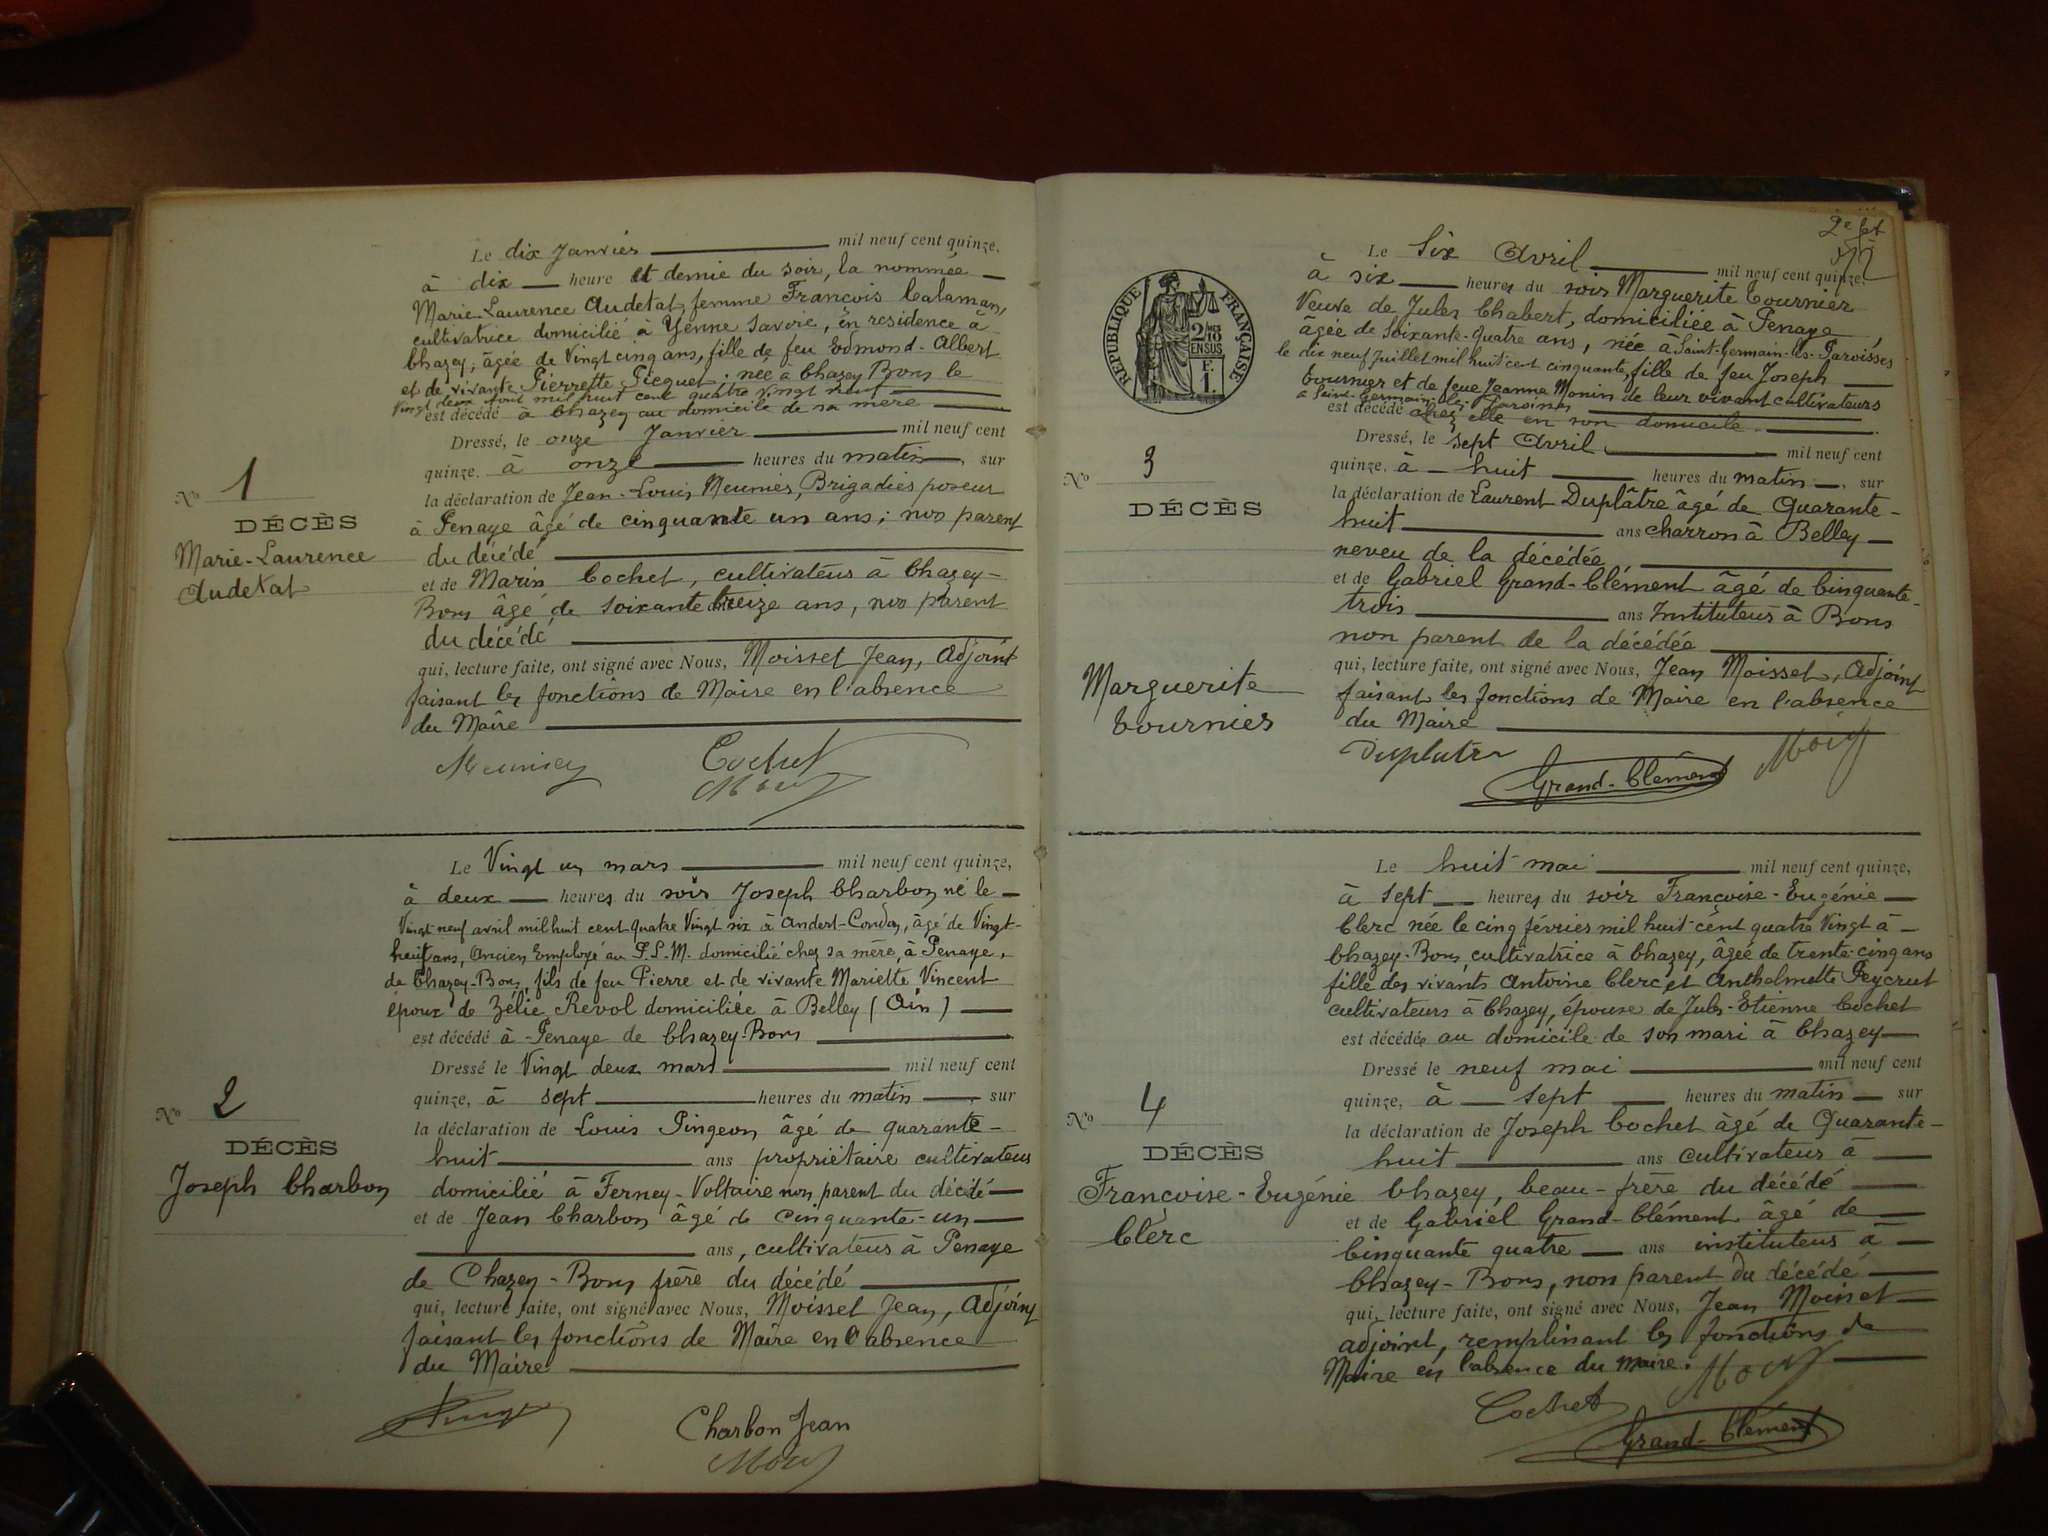 Le dix Janvier mil neuf cent quinze.
à dix heure et demie du soir, la nommée
Marie-Laurence Audetat, femme François Calaman,
cultivatrice domicilié à Yenne Savoie, en residence à
Chazey, âgée de Vingt cinq ans, fille de feu Edmond-Albert
et de vivante Pierrette Picquet. née à Chazey Bons le
Vingt deux Aout mil huit cent quatre vingt neuf
est décédé à Chazey au domicile de sa mère
Dressé, le onze Janvier mil neuf cent
quinze. à onze heures du matin, sur
la déclaration de Jean-Louis Meunier, Brigadier poseur
à Penaye âgé de cinquante un ans; non parent
du décédé
et de Marin Cochet, cultivateur à Chazey-
Bons âgé de soixante treize ans, non parent
du décédé
qui, lecture faite, ont signé avec Nous, Moisset Jean, Adjoint
faisant les fonctions de Maire en l'absence
du Maire
Meunier Cochet
No 1
DÉCÈS
Marie-Laurence
Audetat
Le Vingt un mars mil neuf cent quinze,
à deux heures du soir Joseph Charbon né le
Vingt neuf avril mil huit cent quatre Vingt six à Andert-Condon, âgé de Vingt-
huit ans, Ancien Employé au P.L.M. domicilié chez sa mère, à Penaye,
de Chazey-Bons, fils de feu Pierre et de vivante Mariette Vincent
époux de Zélie Revol domiciliée à Belley (Ain)
est décédé à Penaye de Chazey-Bons
Dressé le Vingt deux mars mil neuf cent
quinze, à sept heures du matin sur
la déclaration de Louis Pingeon âgé de quarante-
huit ans propriétaire cultivateur
domicilié à Ferney-Voltaire non parent du décédé
et de Jean Charbon âgé de cinquante-un
ans, cultivateur à Penaye
de Chazey-Bons frère du décédé
qui, lecture faite, ont signé avec Nous, Moisset Jean, Adjoint
faisant les fonctions de Maire en l'absence
du Maire
Charbon Jean
No 2
DÉCÈS
Joseph Charbon
2e ft
RÉPUBLIQUE FRANÇAISE
2/10
EN SUS
F.
1.
Le Six Avril mil neuf cent quinze.
à six heures du soir Marguerite Tournier
Veuve de Jules Chabert, domiciliée à Penaye
âgée de soixante-quatre ans, née à Saint-Germain-les-Paroisses
le dix neuf Juillet mil huit cent cinquante, fille de feu Joseph
Tournier et de feue Jeanne Monin de leur vivant cultivateurs
à Saint-Germain-les-Paroisses
est décédé chez elle en son domicile.
Dressé, le sept Avril mil neuf cent
quinze. à huit heures du matin, sur
la déclaration de Laurent Duplâtre âgé de Quarante-
huit ans Charron à Belley
neveu de la décédée
et de Gabriel Grand-Clément âgé de Cinquante-
trois ans Instituteur à Bons
non parent de la décédée
qui, lecture faite, ont signé avec Nous, Jean Moisset, Adjoint
faisant les fonctions de Maire en l'absence
du Maire
Duplatre Grand-Clément
No 3
DÉCÈS
Marguerite
Tournier
Le huit mai mil neuf cent quinze,
à sept heures du soir Françoise-Eugénie
Clerc née le cinq février mil huit cent quatre Vingt à
Chazey-Bons cultivatrice à Chazey, âgée de trente-cinq ans
fille des vivants Antoine Clerc et Anthelmette Peycrut
cultivateurs à Chazey, épouse de Jules-Etienne Cochet
est décédée au domicile de son mari à Chazey
Dressé le neuf mai mil neuf cent
quinze, à sept heures du matin sur
la déclaration de Joseph Cochet âgé de Quarante-
huit ans cultivateur à
Chazey, beau-frère du décédé
et de Gabriel Grand-Clément âgé de
Cinquante quatre ans instituteur à
Chazey-Bons, non parent du décédé
qui, lecture faite, ont signé avec Nous, Jean Moisset
adjoint, remplissant les fonctions de
Maire en l'absence du maire.
Cochet
Grand-Clément
No 4
DÉCÈS
Françoise-Eugénie
Clerc